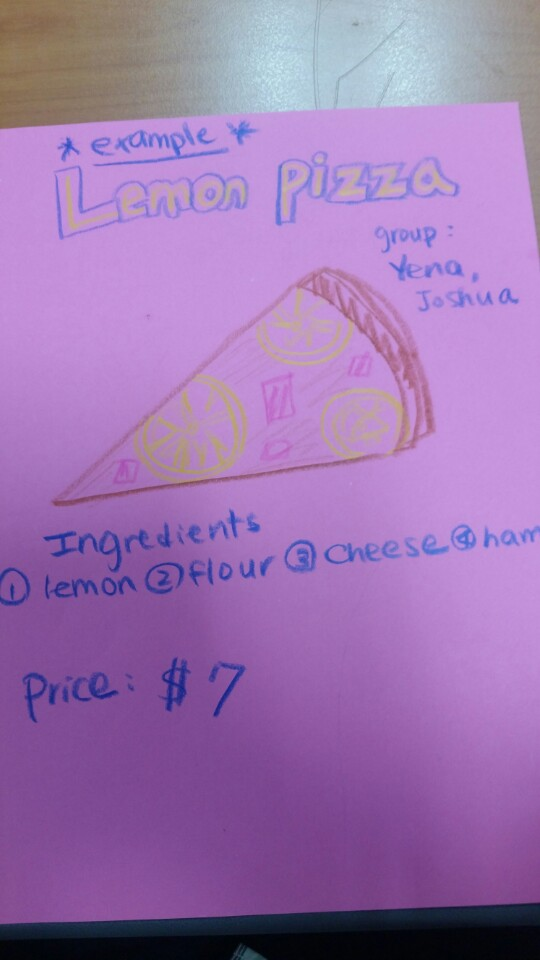 * example *
Lemon Pizza
group :
Yena,
Joshua
Ingredients
① lemon ② flour ③ cheese ④ ham
Price: $7